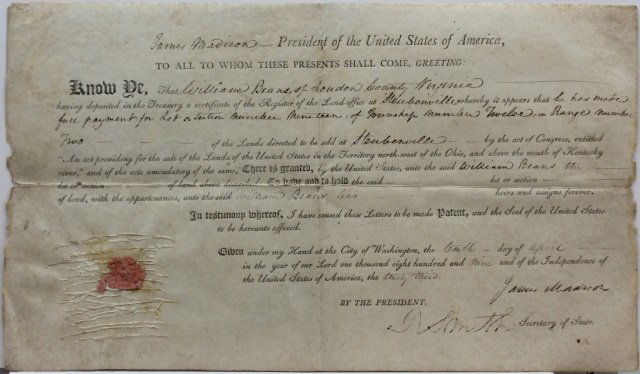 James Madison — President of the United States of America,
TO ALL TO WHOM THESE PRESENTS SHALL COME, GREETING:
Know Ye, That William Beans, of Loudon County Virginia
having deposited in the Treasury a certificate of the Register of the Land office at Steubenville, whereby it appears that he has made
full payment for Lot or Section number Nineteen, of Township number Twelve, in Range number
Two — of the Lands directed to be sold at Steubenville — by the act of Congress, entitled
"An act providing for the sale of the Lands of the United States in the Territory north-west of the Ohio, and above the mouth of Kentucky
river," and of the acts amendatory of the same, There is granted, by the United States, unto the said William Beans the
lot or section of land above described: To have and to hold the said lot or section
of land, with the appurtenances, unto the said William Beans his heirs and assigns forever.
In testimony whereof, I have caused these Letters to be made Patent, and the Seal of the United States
to be hereunto affixed.
Given under my Hand at the City of Washington, the tenth day of April
in the year of our Lord one thousand eight hundred and Nine and of the Independence of
the United States of America, the thirty third.
James Madison
BY THE PRESIDENT,
R Smith Secretary of State.